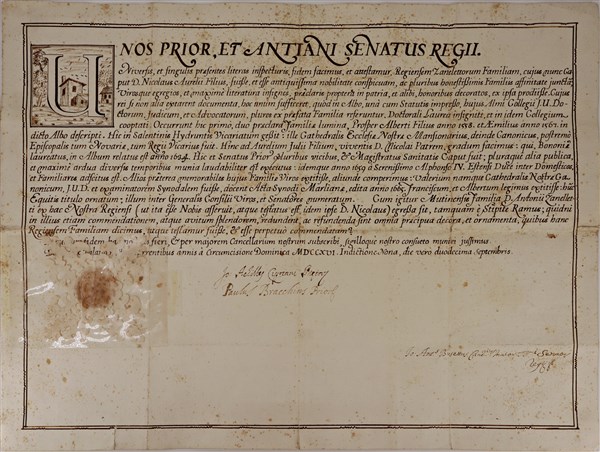 NOS PRIOR, ET ANTIANI SENATUS REGII.
Universis, et singulis presentes literas inspecturis, fidem facimus, et attestamur, Regiensem Zanelettorum Familiam, cujus nunc Ca
put D. Nicolaus Aurelii Filius, fuisse, et esse antiquissima nobilitate conspicuam, ac pluribus honestissimis Familiis affinitate junctam
Virosque egregios, et maximè litteratura insignes, praeclarè propterea in patria, et alibi, honoribus decoratos, ex ipsa prodiisse. Cujus
rei si non alia extarent documenta, hoc unum sufficeret, quod in Albo, unà cum Statutis impresso, hujus Almi Collegii J.U. Do
ctorum, Judicum, et Advocatorum, plures ex prefata Familia referuntur, Doctorali Laurea insigniti, et in idem Collegium
cooptati. Occurrunt hic primò, duo preclara Familiae lumina, Prosper Alberti Filius anno 1578. et Aemilius anno in
dicto Albo descripti. Hic in Salentinis Hydrunti Vicariatum gessit: ille Cathedralis Ecclesiae Nostrae Mansionarius, deinde Canonicus, postremò
Episcopalis tum Novariae, tum Regii Vicarius fuit. Hinc ad Aurelium Julii Filium, viventis D. Nicolai Patrem, gradum facimus: qui, Bononiae
laureatus, in Album relatus est anno 1624. Hic et Senatus Prior pluribus vicibus, & Magistratus Sanitatis Caput fuit; pluraque alia publica,
et maximè ardua diversis temporibus munia laudabiliter est executus: idemque anno 1650 a Serenissimo Alphonso IV. Estensi Duce inter Domesticos
et Familiares ascitus est. Alios praeterea memorabiles hujus Familiae Viros extitisse, aliunde comperimus: Valerium namque Cathedralis Nostrae Ca
nonicum, J.U.D. et examinatorem Synodalem fuisse, docent Acta Synodi Marliane, edita anno 1665; Franciscum, et Albertum legimus extitisse: hunc
Equitis titulo ornatum; illum inter Generalis Consilii Viros, et Senatores enumeratum. Cum igitur Mutinensis Familia D. Antonii Zanelet
ti ex hac Nostra Regiensi (ut ita esse Nobis asseruit, atque testatus est idem ipse D. Nicolaus) egressa sit, tamquam è Stipite Ramus; quidni
in illius etiam commendationem, atque ortum ostendendum, redundent, ac refundenda sint omnia praecipua decora, et ornamenta, quibus hanc
Regiensem Familiam dicimus, atque testamur fuisse, & esse perpetuò commendatam?
fieri, & per majorem Cancellarium nostrum subscribi, sigilloque nostro consueto muniri jussimus
currentibus annis à Circumcisione Dominica MDCCXVI. Indictione Nona, die verò duodecima Septembris.
Prior
Paulus